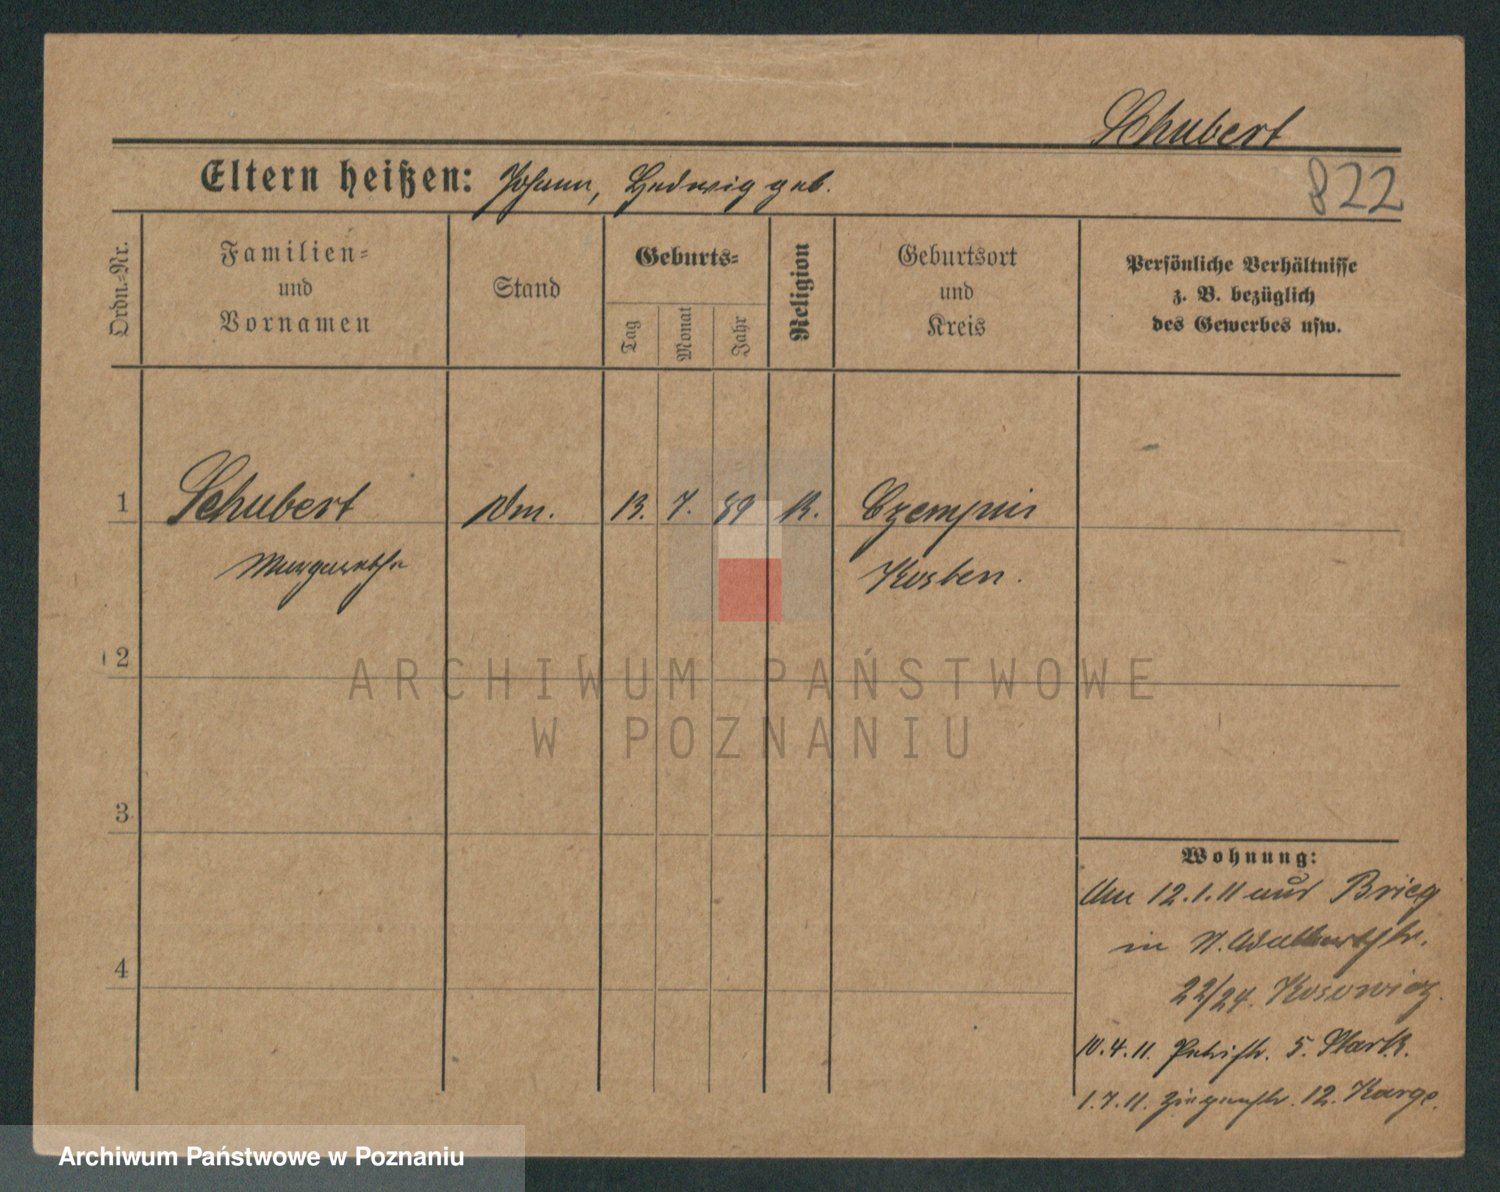 Schubert
Eltern heißen: Johann, Hedwig geb.
822
Ordn.-Nr.
Familien-
und
Vornamen
Stand
Geburts-
Tag
Monat
Jahr
Religion
Geburtsort
und
Kreis
Persönliche Verhältnisse
z. B. bezüglich
des Gewerbes usw.
1 Schubert 13. 7. 89 K. Czempin
Margarethe Kosten.
2
ARCHIWUM PAŃSTWOWE
W POZNANIU
3
4
Wohnung:
Am 12.1.11 aus Brieg
in N.
22/24.
10.4.11. Petristr. 5. Stark.
1.7.11. Ziegenstr. 12. Karge.
Archiwum Państwowe w Poznaniu